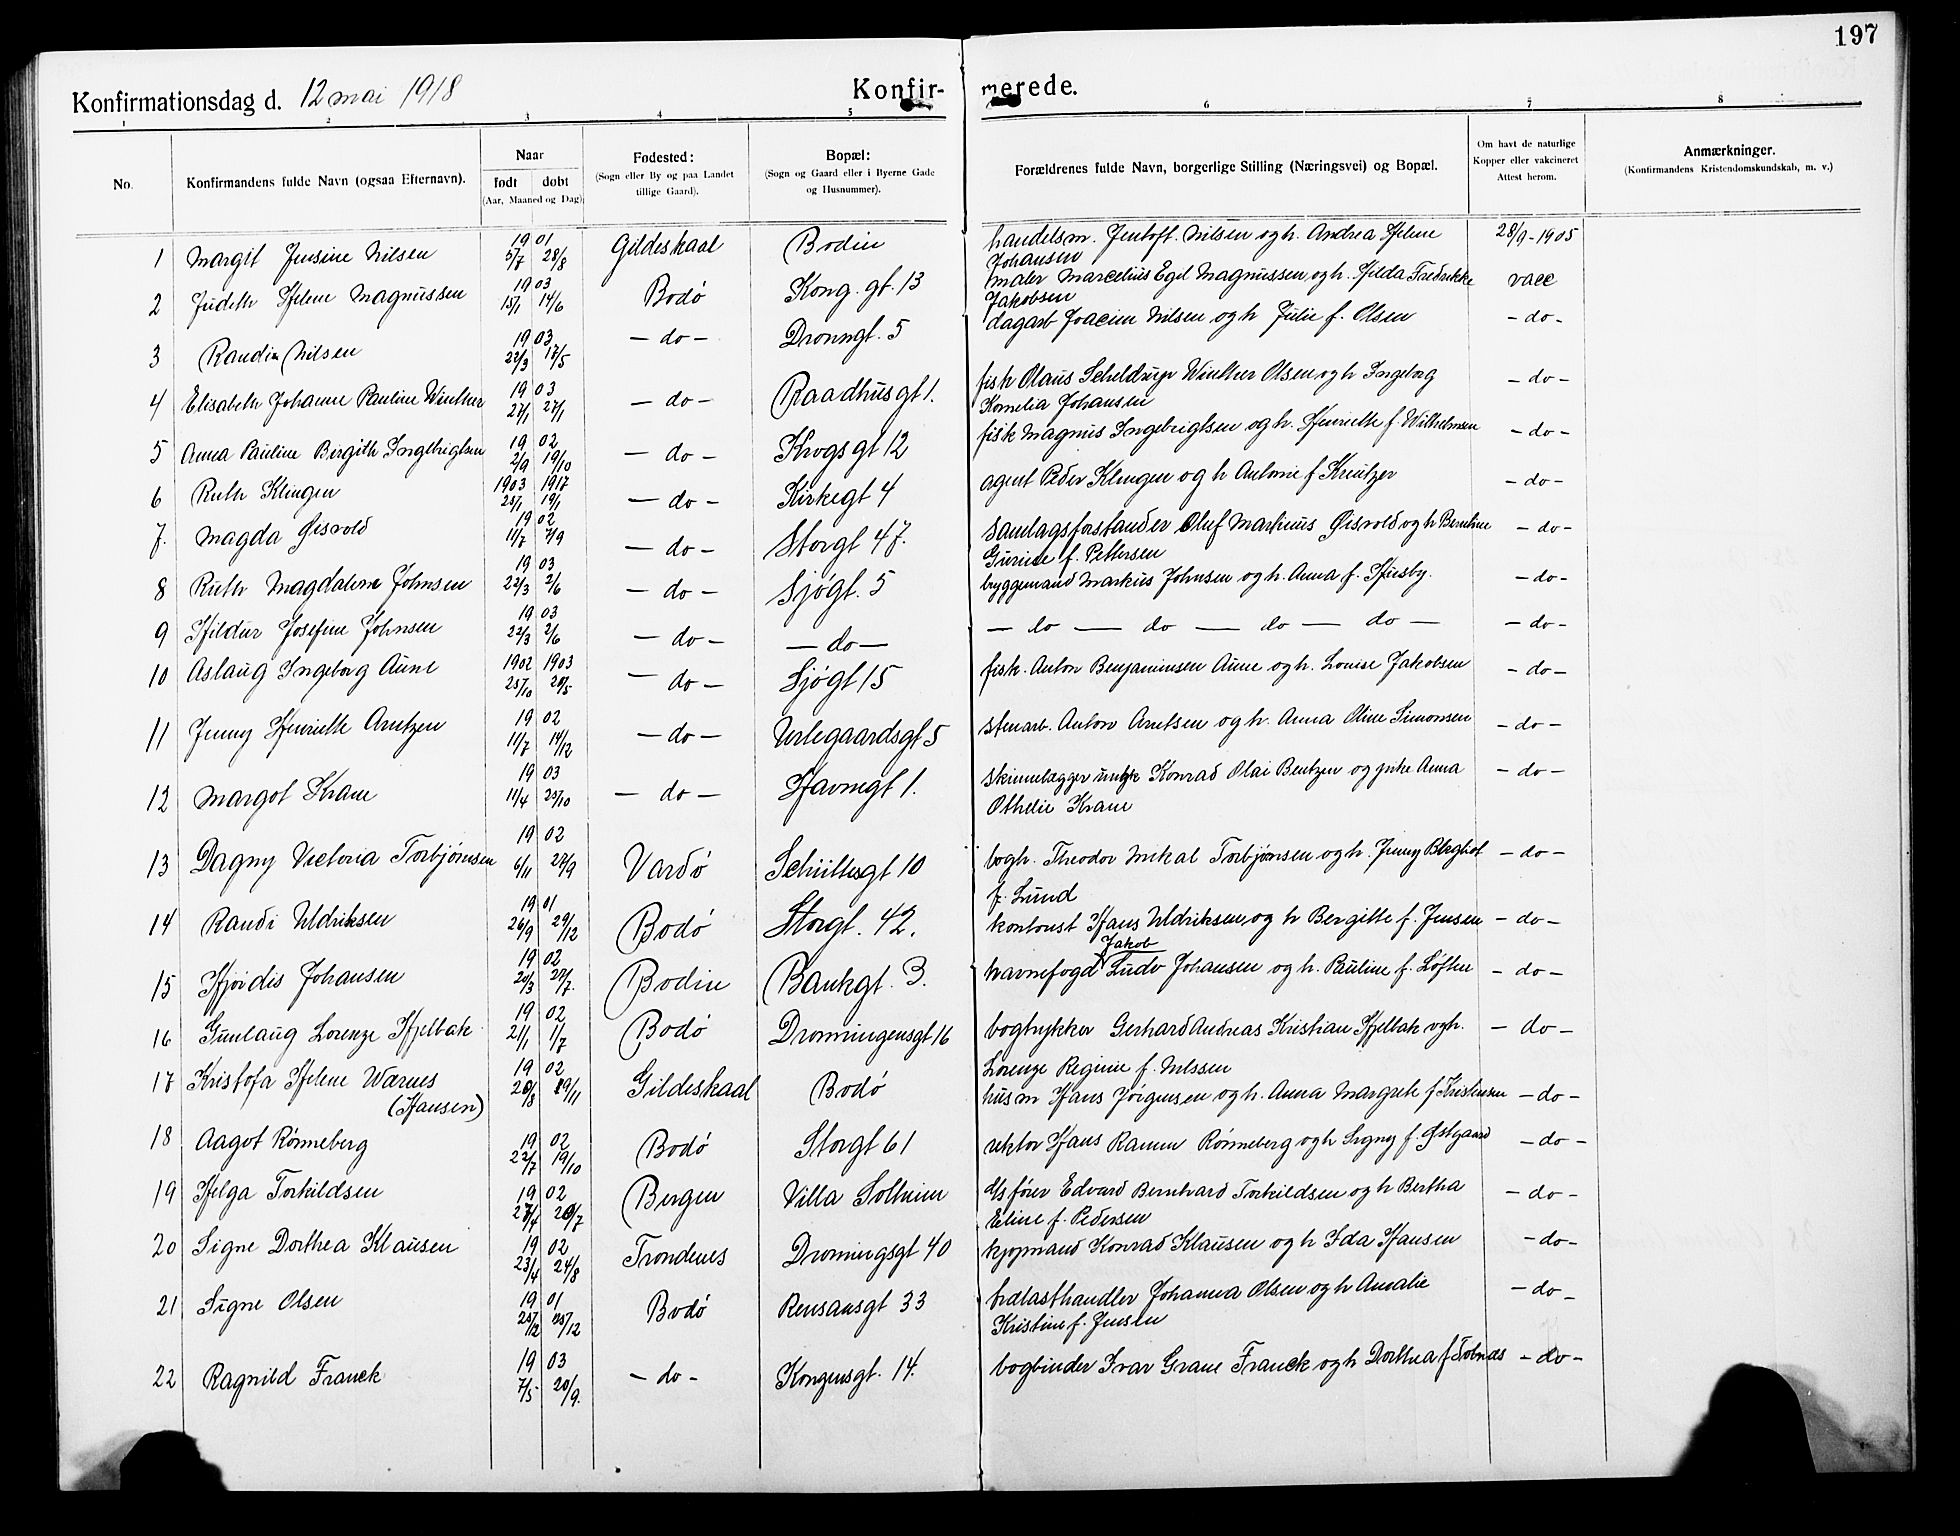 197
Konfirmationsdag d. 12 mai 1918 Konfir- merede.
1 2 3 4 5 6 7 8
No. Konfirmandens fulde Navn (ogsaa Efternavn). Naar født døbt (Aar, Maaned og Dag) Fødested: (Sogn eller By og paa Landet tillige Gaard). Bopæl: (Sogn og Gaard eller i Byerne Gade og Husnummer). Forældrenes fulde Navn, borgerlige Stilling (Næringsvei) og Bopæl. Om havt de naturlige Kopper eller vakcineret Attest herom. Anmærkninger. (Konfirmandens Kristendomskundskab, m. v.)
1 Margit Jensine Nilsen 19 01 5/7 28/8 Gildeskaal Bodin handelsm. Jentoft Nilsen og h. Andrea Helene 28/9-1905
Johansen
2 Judith Helene Magnussen 19 03 15/1 14/6 Bodø Kong. gt. 13 maler Marcelius Egil Magnussen og h. Hilda Fredrikke vacc
Jakobsen
3 Randia Nilsen 19 03 22/3 17/5 - do - Dronngt. 5 dagarb Joacim Nilsen og h Julie f. Olsen - do -
4 Elisabeth Johanne Pauline Winther 19 03 27/1 27/1 - do - Raadhusgt 1. fisk Olaus Scheldrup Winther Olsen og h Ingeborg - do -
Kornelia Johansen
5 Anna Pauline Birgith Ingebrigtsen 19 02 2/9 19/10 - do - Krogs gt 12 fisk Magnus Ingebrigtsen og h. Henriette f. Wilhelmsen - do -
6 Ruth Klingen 1903 1917 25/1 19/1 - do - Kirkegt 4 agent Peder Klingen og h Antonie f Kreutzer - do -
7. Magda Øisvold 19 02 11/7 7/9 - do - Storgt 47. Samlagsforstander Oluf Markinus Øisvold og h Berntine - do -
Gurine f. Pettersen
8 Ruth Magdalene Johnsen 19 03 22/3 2/6 - do - Sjøgt. 5 bryggemand Markus Johnsen og h. Anna f. Husby. - do -
9 Hildur Josefine Johnsen 19 03 22/3 2/6 - do - - do - - do - do - do - do - - do -
10 Aslaug Ingeborg Aune 1902 1903 25/10 28/5 - do - Sjøgt 15 fisk. Anton Benjaminsen Aune og h. Louise Jakobsen - do -
11 Jenny Henriette Arntzen 19 02 11/7 14/12 - do - Verlegaardsgt 5 stenarb. Anton Arntsen og h. Anna Oline Simonsen - do -
12 Margot Krane 19 03 11/4 25/10 - do - Havnegt 1. Skinnelægger ungk Konrad Olai Bentzen og pike Anna - do -
Othelie Krane
13 Dagny Victoria Torbjørnsen 19 02 6/11 27/9 Vardø Schüttesgt 10 bogh. Theodor Mikal Torbjørnsen og h. Jenny Bergliot - do -
f. Lund
14 Randi Uldriksen 19 01 26/9 29/12 Bodø Storgt. 42. kontorist Hans Uldriksen og h Bergitte f. Jensen - do -
15 Hjørdis Johansen 19 02 20/3 27/7. Bodin Bankgt. 3. havnefogd Jakob Ludv Johansen og h. Pauline f. Løften - do -
16 Gunlaug Lorenze Hjelbak 19 02 21/1 1/7 Bodø Dronningensgt 16 bogtrykker Gerhard Andreas Kristian Hjelbak og h. - do -
Lorenze Regine f. Nilssen
17 Kristofa Helene Wærnes 19 02 20/8 29/11 Gildeskaal Bodø husm Hans Jørgensen og h. Anna Margrete f Kristensen - do -
(Hansen)
18 Aagot Rønneberg 19 02 22/7 19/10 Bodø Storgt 61 rektor Hans Ramm Rønneberg og h Signy f. Østgaard - do -
19 Helga Torkildsen 19 02 27/4 20/7 Bergen Villa Solheim fører Edvard Bernhard Torkildsen og h Bertha - do -
Eline f. Pedersen
20 Signe Dorthea Klausen 19 02 23/4 24/8 Trondenes Dronningsgt 40 kjøpmand Konrad Klausen og h Ida Hansen - do -
21 Signe Olsen 19 01 25/12 25/12 Bodø Rensaasgt 33 trælasthandler Johannes Olsen og h Amalie - do -
Kristine f. Jensen
22 Ragnild Franck 19 03 7/5 20/9. - do - Kongensgt. 14. bogbinder Ivar Grane Franck og h Dorthea f Tolnæs - do -